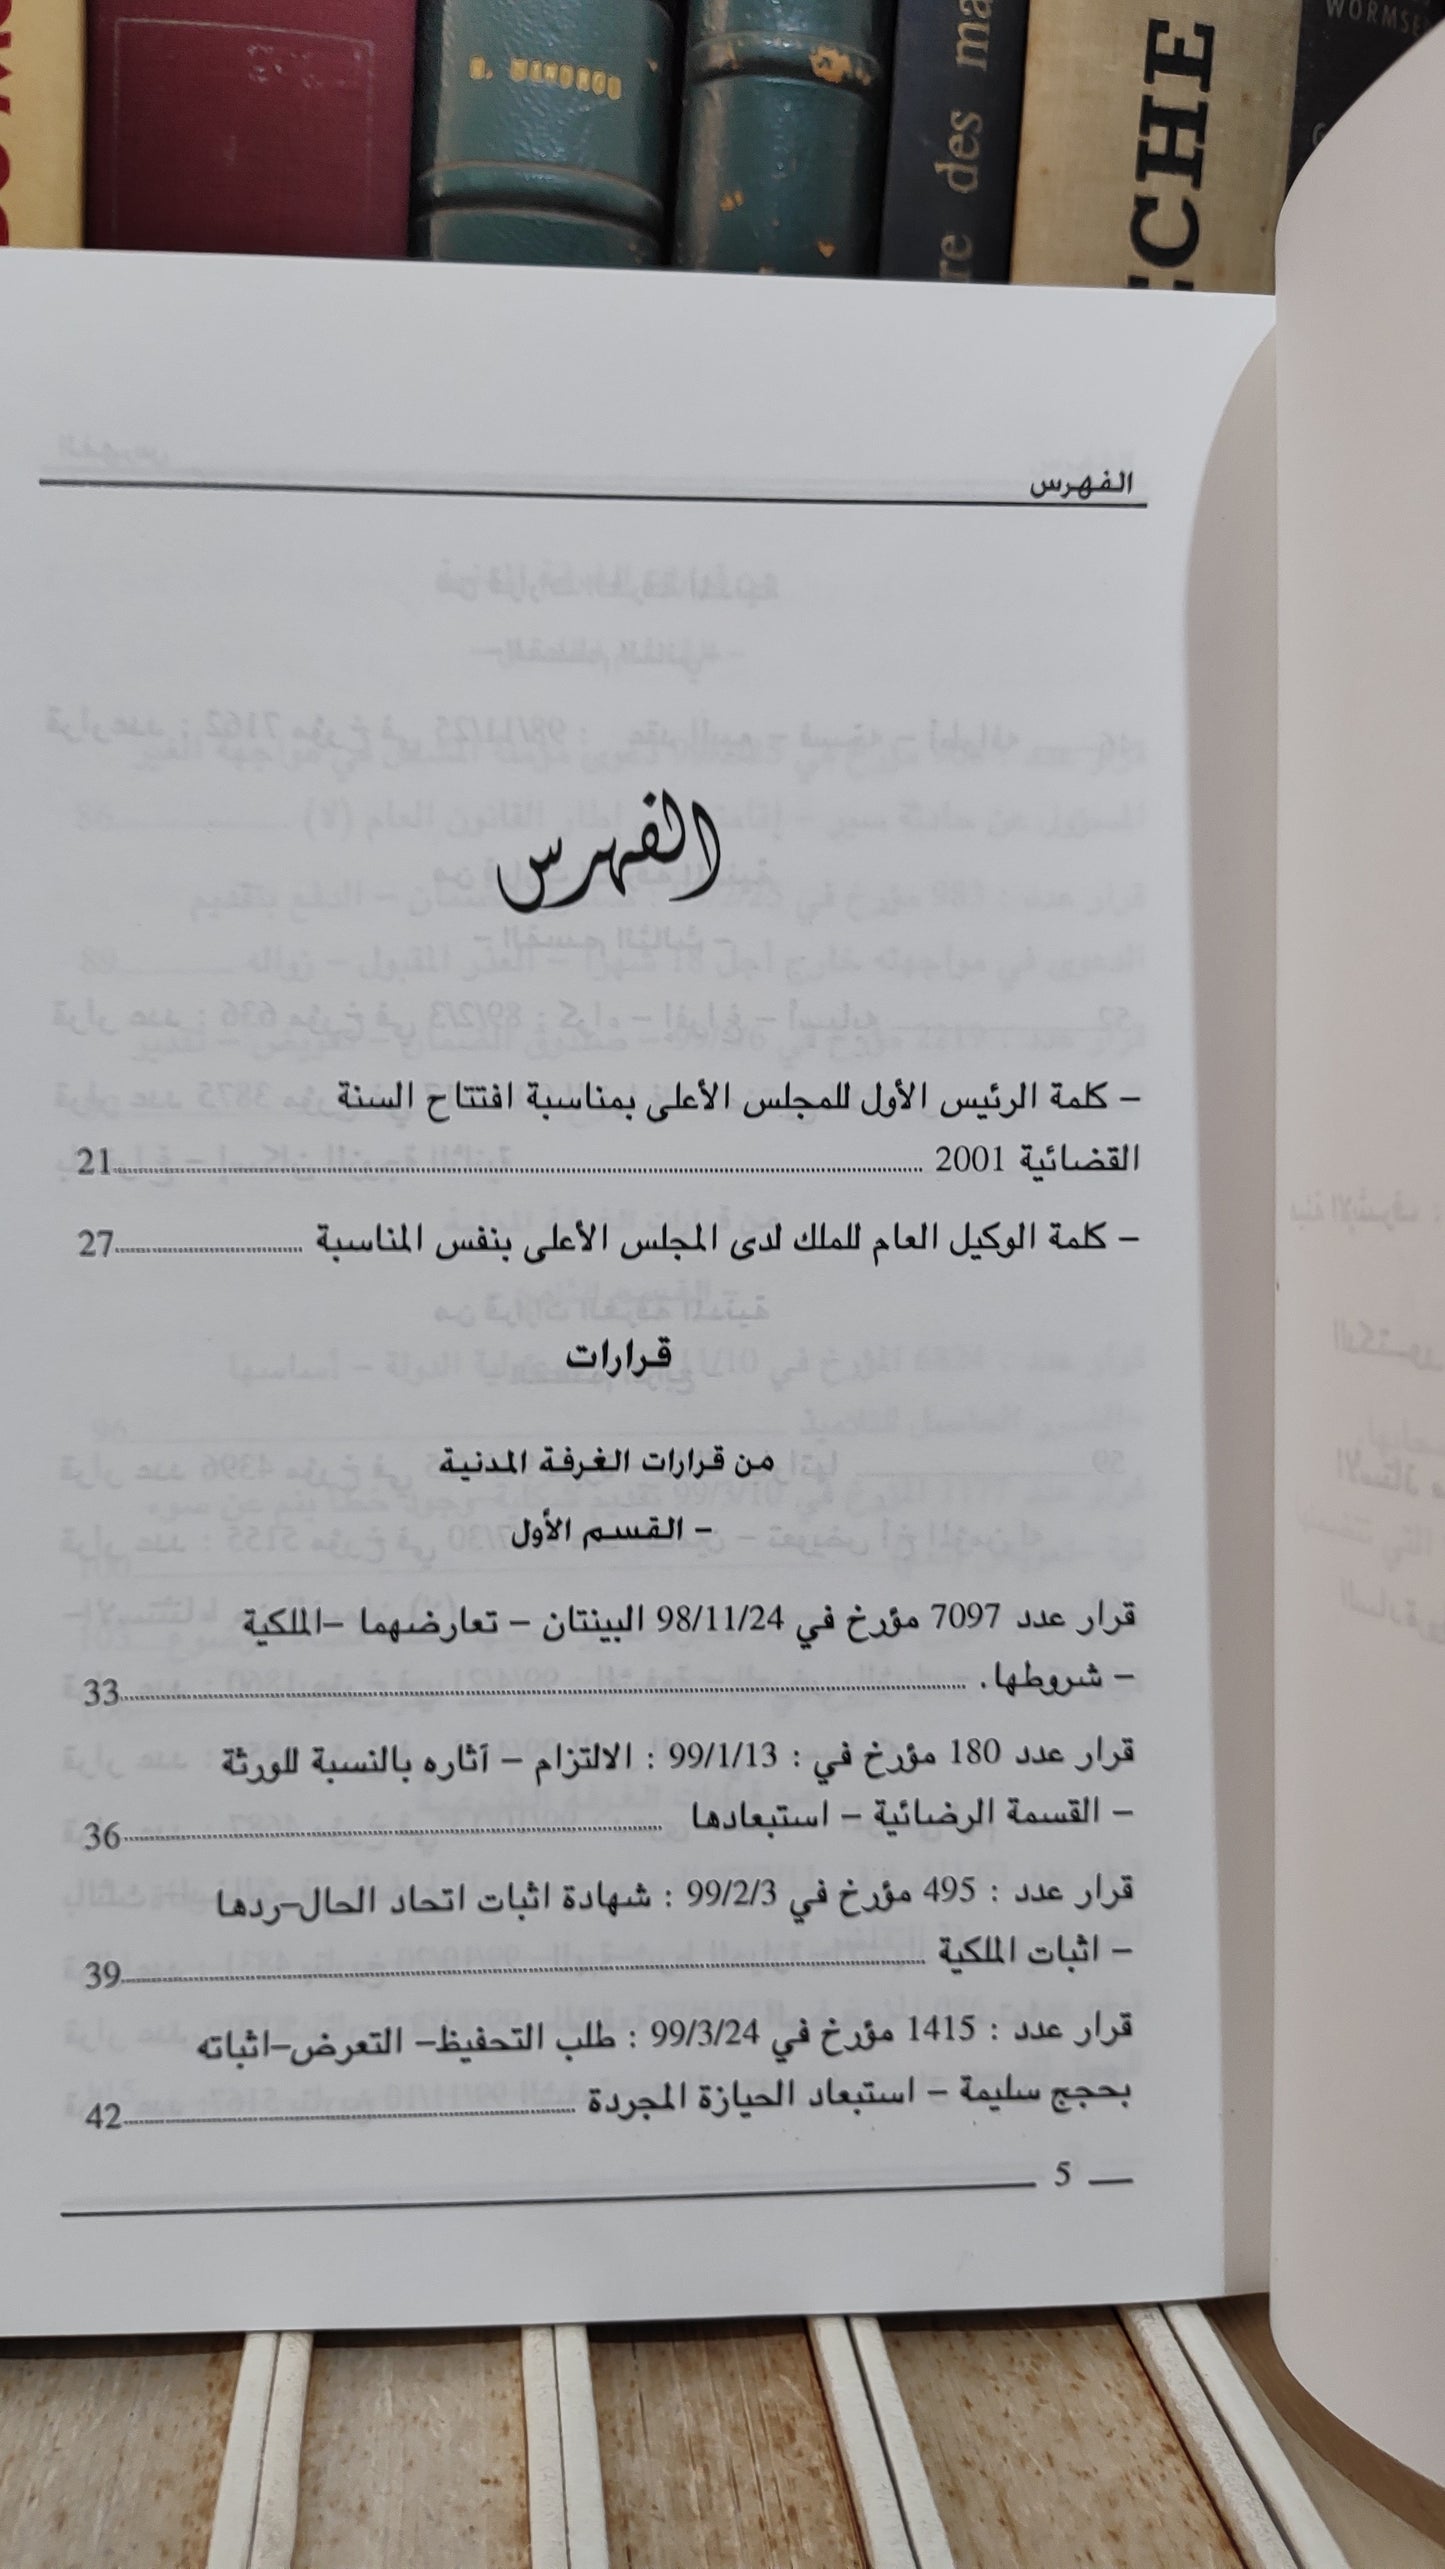 H. MINDROU
re des ma
CHE
WORMSE
الفهرس
الفهرس
– كلمة الرئيس الأول للمجلس الأعلى بمناسبة افتتاح السنة
القضائية 2001 ........ 21
– كلمة الوكيل العام للملك لدى المجلس الأعلى بنفس المناسبة ........ 27
قرارات
من قرارات الغرفة المدنية
– القسم الأول
قرار عدد 7097 مؤرخ في 98/11/24 البينتان – تعارضهما –الملكية
– شروطها. ........ 33
قرار عدد 180 مؤرخ في : 99/1/13 : الالتزام – آثاره بالنسبة للورثة
– القسمة الرضائية – استبعادها ........ 36
قرار عدد : 495 مؤرخ في 99/2/3 : شهادة اثبات اتحاد الحال–ردها
– اثبات الملكية ........ 39
قرار عدد : 1415 مؤرخ في 99/3/24 : طلب التحفيظ– التعرض–اثباته
بحجج سليمة – استبعاد الحيازة المجردة ........ 42
5